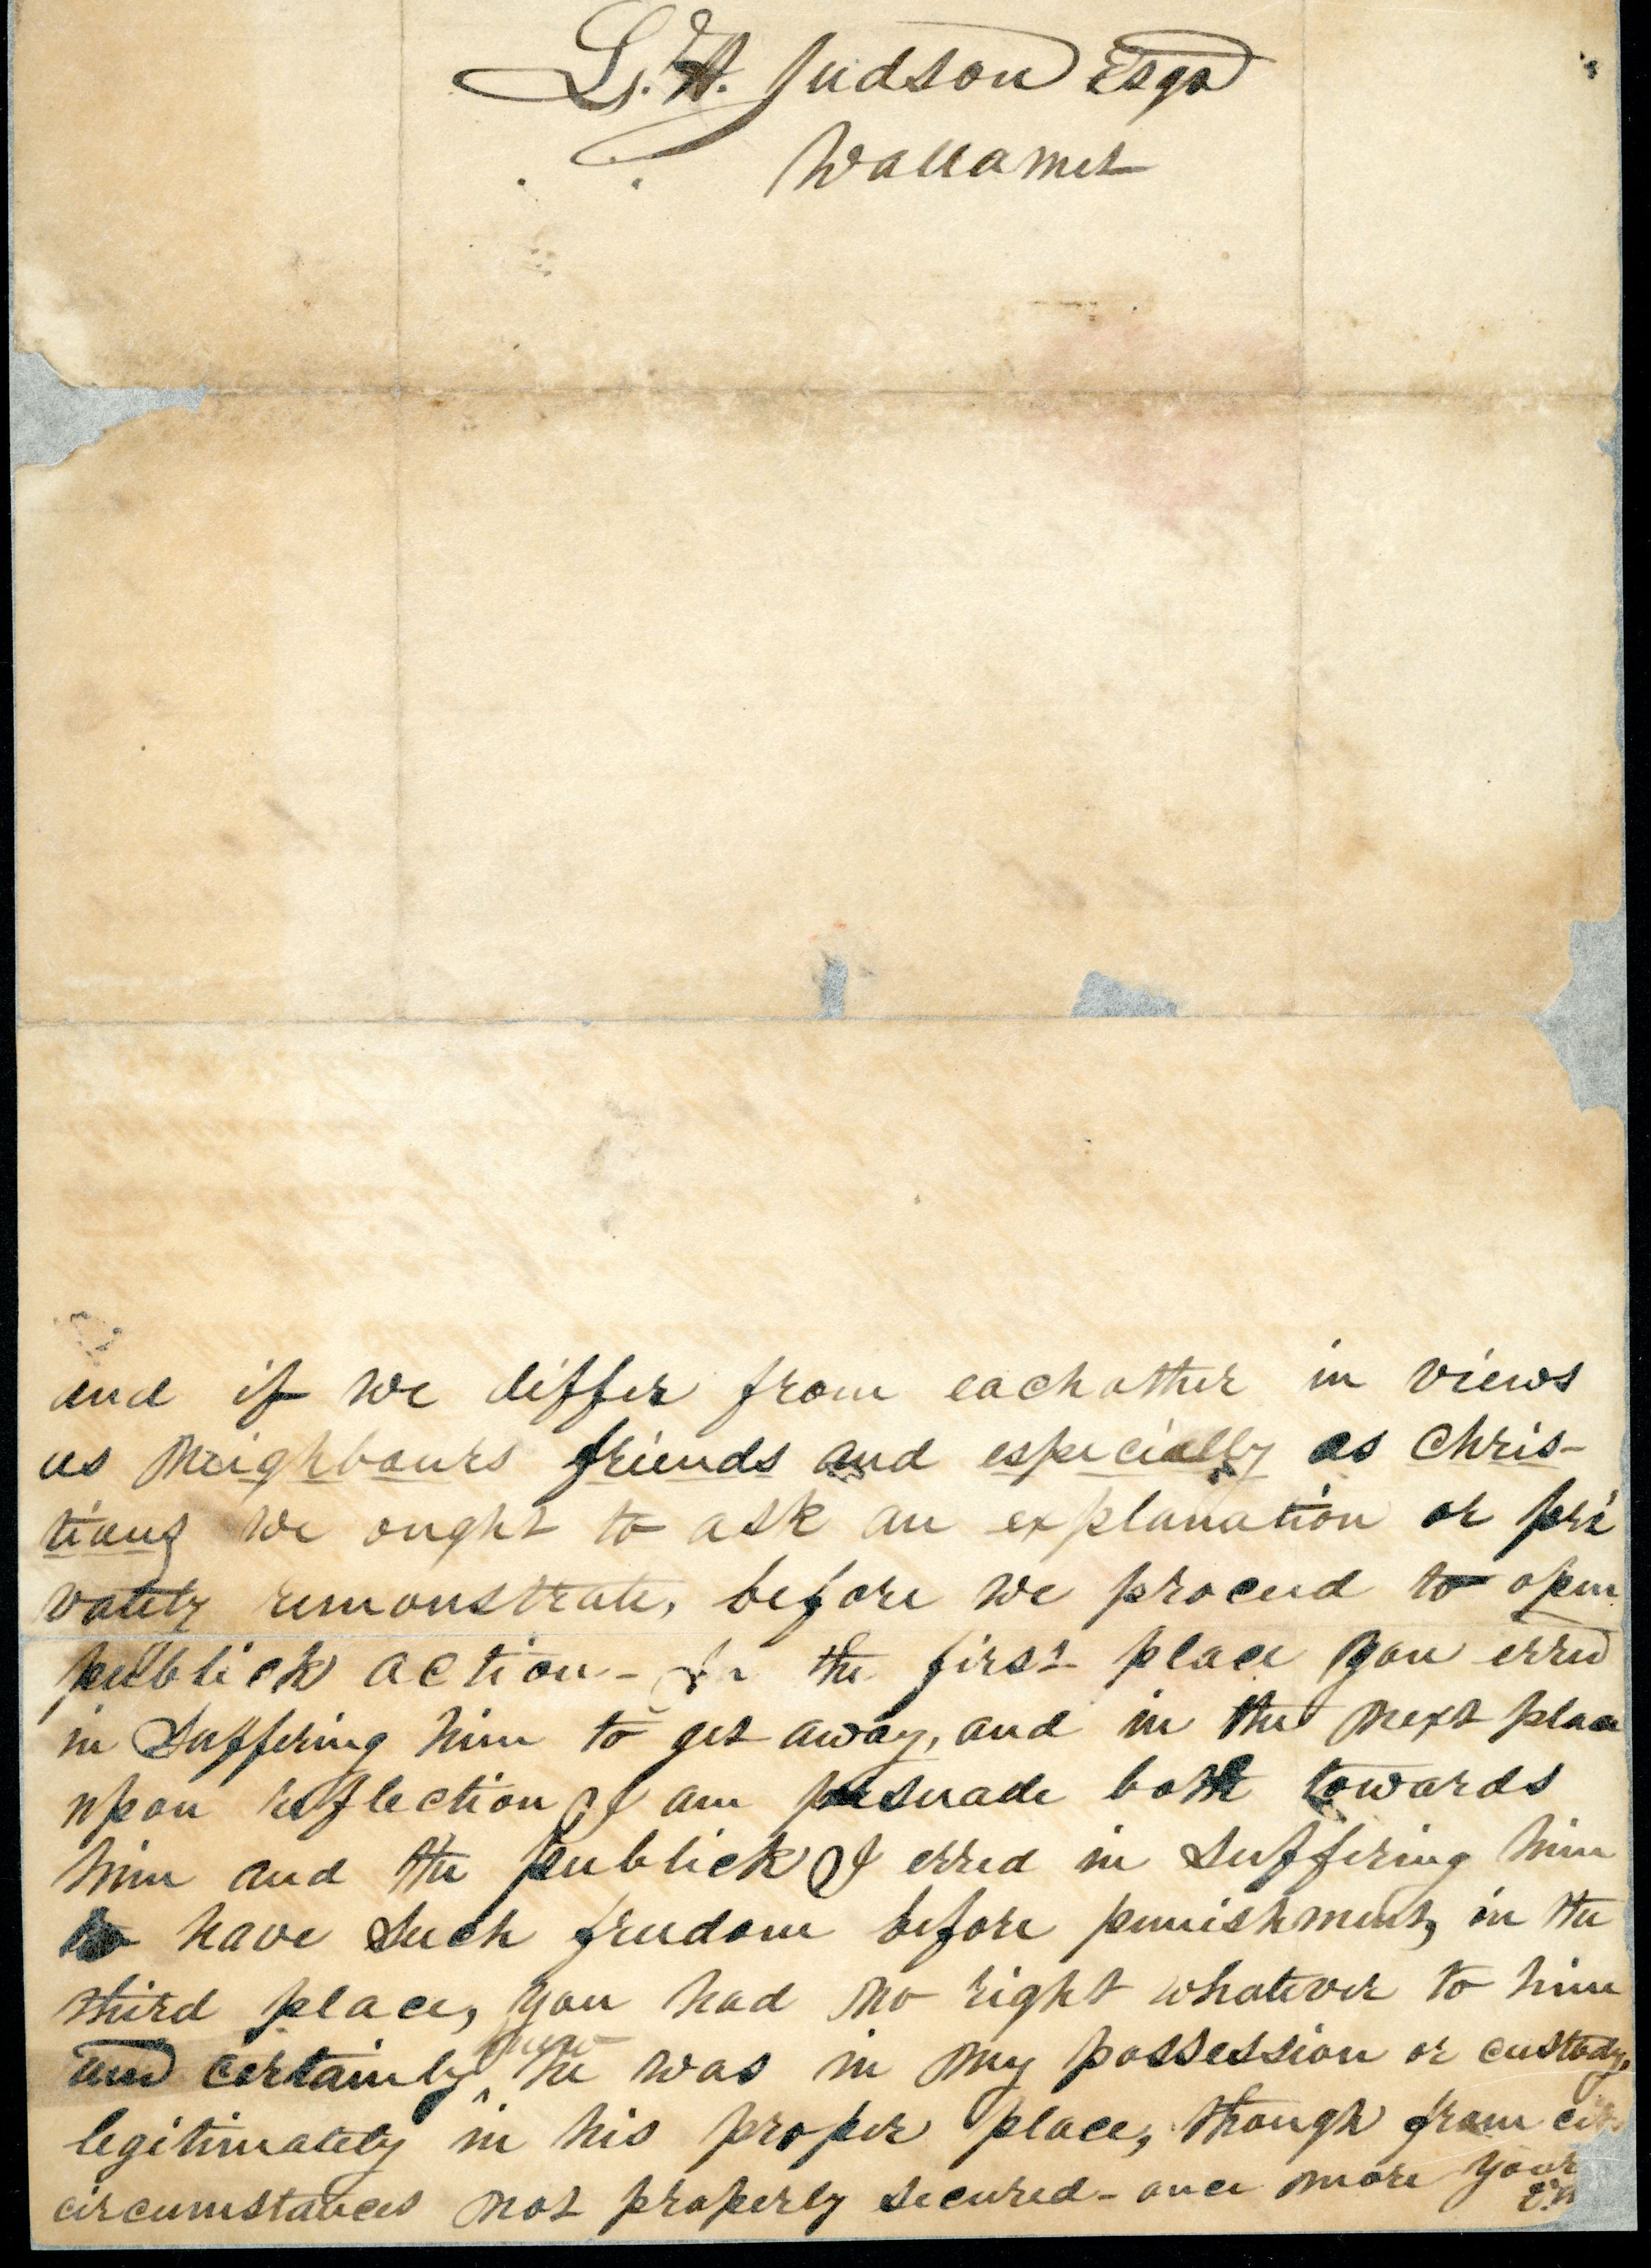 L. H. Judson Esqr
Wallamet
and if we differ from eachother in views
as Neighbours friends and especially as Chris-
tians we ought to ask an explanation or pri
vately remonstrate, before we proceed to open
publick action - In the first place you erred
in suffering him to get away, and in the next place
upon reflection I am persuade both towards
him and the publick I erred in suffering him
to have such freedom before punishment, in the
third place, you had no right whatever to him
and certainly he was in my possession or custody,
legitimately in his proper place, though from
circumstances not properly secured - once more your